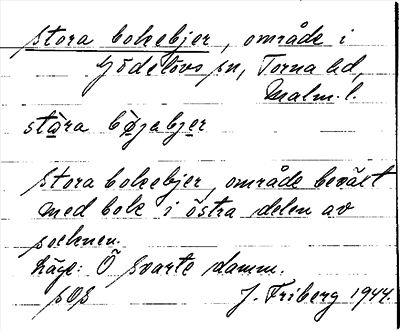 stora bokebjer, område i
Gödelövs sn, Torna hd,
Malm. l.
stòra bø̀jabjer
Stora bokebjer, område beväxt
med bok i östra delen av
socknen.
Läge: Ö Svarte damm.
sOs J. Friberg 1944.